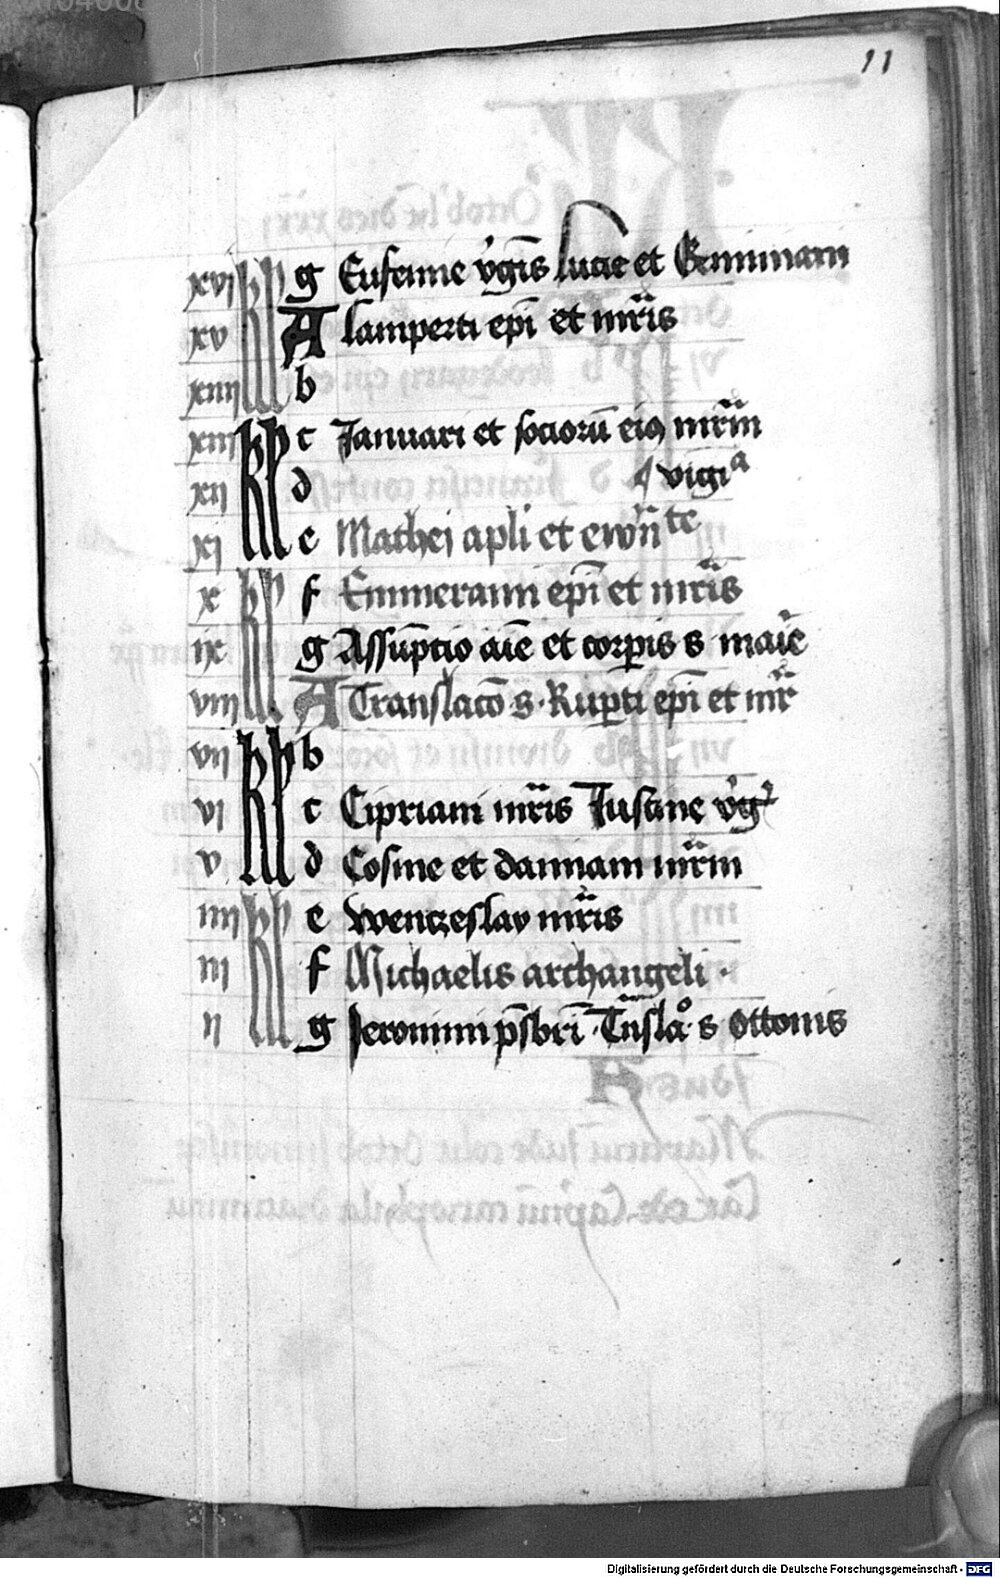 11
xvi kl g Eufemie v̓gīs lucie et Geminiani
xv A lamperti ep̄i et mr̄is
xiiii b
xiii kl c Januari et socioru̅ eiꝰ mr̄m
xii d vigiᵃ
xi e Mathei apli et ewn̄te
x kl f Emmerammi ep̄i et mr̄is
ix g Assūptio aīe et corpis s marīe
viii A Translacō s. Ruꝑti ep̄i et mr̄
vii kl b
vi c Cipriani mr̄is Justine v̓g
v d Cosme et damiani mr̄m
iiii kl e Wentzeslay mr̄is
iii f Michaelis archangeli .
ii g Jeronimi p̄sbr̄i . Tn̄slaº s Ottonis
Digitalisierung gefördert durch die Deutsche Forschungsgemeinschaft - DFG